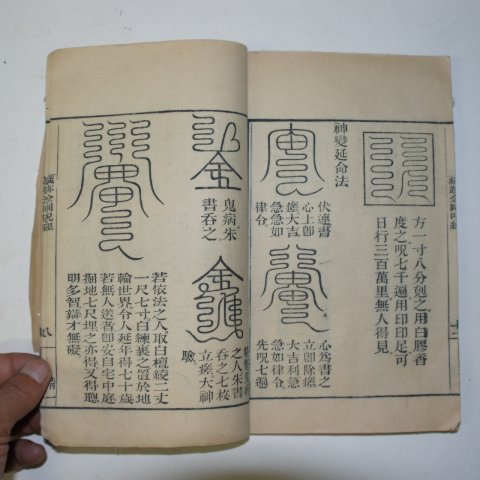 方一寸八分刻之用白膠香
度之呪七千遍用印印足可
日行三百萬里無人得見
神變延命法
伏連書
心上卽
瘥大吉
急急如
律令
心爲書之
立卽除瘥
大吉利急
急如律令
先呪七遍
鬼病朱
書呑之
之人朱書
呑之七枚
立瘥大神
驗
若依法之人取白檀綾二丈
一尺七寸白練裹之置於地
輪世界令人延年得七十歲
若無人送者卽安自宅中庭
掘地七尺埋之亦得又得聰
明多智辯才無礙